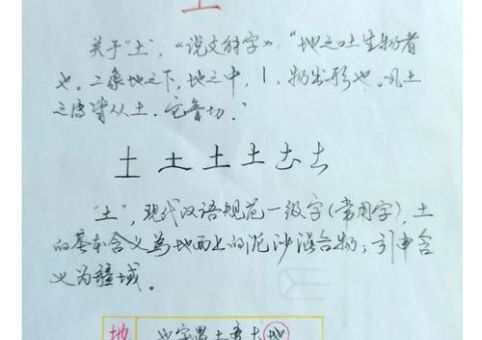 土
关于"土",《说文解字》:"地之吐生物者
也。二象地之下,地之中,丨,物出形也。凡土
之属皆从土。它鲁切。"
土 土 土 土 土 土
"土",现代汉语规范一级字(常用字),土
的基本含义為地面上的泥沙混合物;引申含
义为疆域。
地